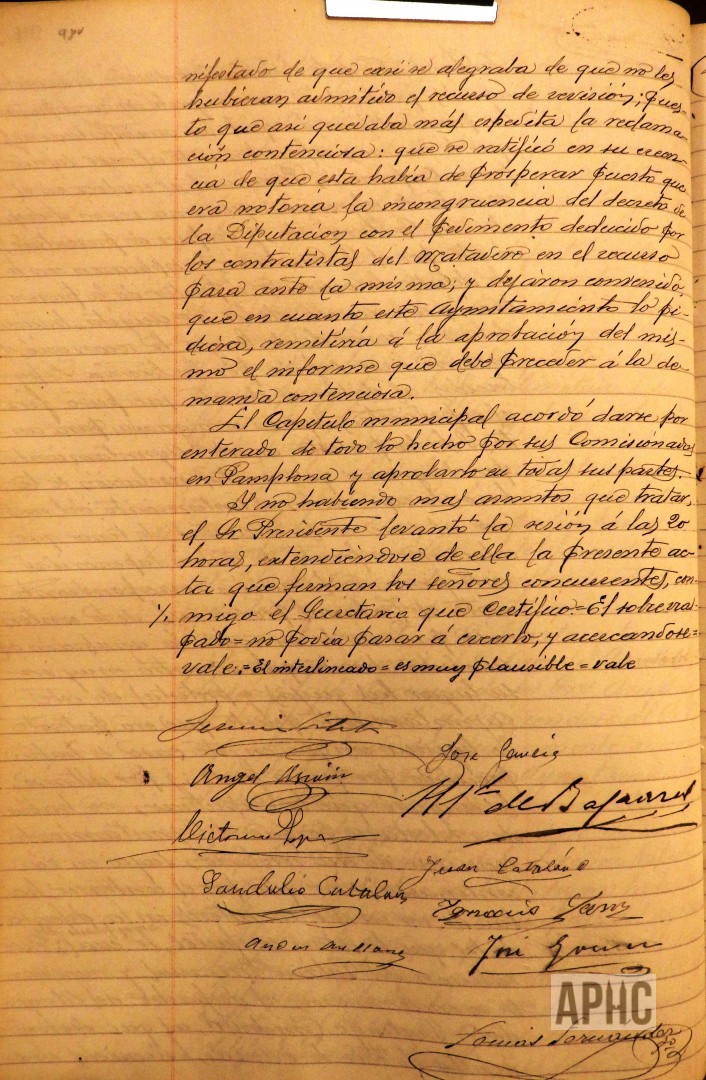 nifestado de que casi se alegraba de que no les
hubieran admitido el recurso de revisión; pues-
to que así quedaba más espedita la reclama-
ción contenciosa: que se ratificó en su creen-
cia de que esta había de prosperar puesto que
era notoria la incongruencia del decreto de
la Diputacion con el pedimento deducido por
los contratistas del Matadero en el recurso
para ante la misma; y dejaron convenido
que en cuanto este Ayuntamiento lo pi-
diera, remitiría á la aprobación del mis-
mo el informe que debe preceder á la de-
manda contenciosa.
El Capítulo municipal acordó darse por
enterado de todo lo hecho por sus Comisionados
en Pamplona y aprobarlo en todas sus partes.
Y no habiendo mas asuntos que tratar,
el Sr Presidente levantó la sesión á las 20
horas, extendiéndose de ella la presente ac-
ta que firman los señores concurrentes, con-
migo el Secretario que certifico.=El sobreras-
pado=no podía pasar á creerlo, y acercandose=
vale.=El interlineado=es muy plausible=vale
Jose Garcia
Angel
de
Victor
Juan Catalán
Sandalio Catalan
Ignacio
José
Tomás Fernandez
APHC